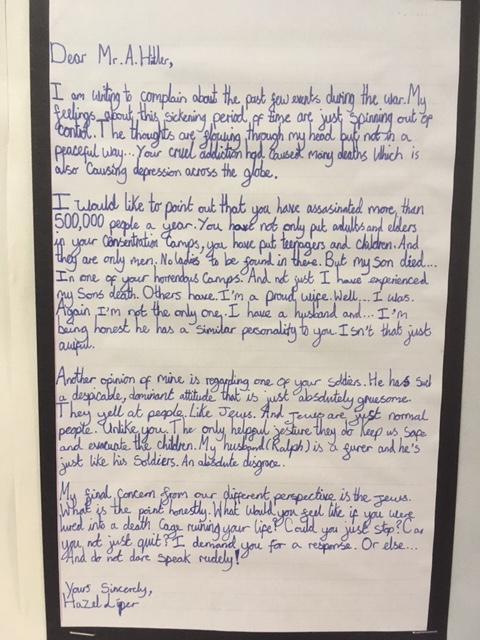 Dear Mr. A. Hitler,
I am writing to complain about the past few events during the war. My
feelings about this sickening period of time are just spinning out of
control. The thoughts are flowing through my head but not in a
peaceful way... Your cruel addiction had caused many deaths which is
also causing depression across the globe.
I would like to point out that you have assasinated more than
500,000 people a year. You have not only put adults and elders
in your Consentration Camps, you have put teenagers and children. And
they are only men. No ladies to be found in there. But my Son died....
In one of your horrendous Camps. And not just I have experienced
my Sons death. Others have. I'm a proud wife. Well... I was.
Again I'm not the only one. I have a husband and... I'm
being honest he has a similar personality to you. Isn't that just
awful.
Another opinion of mine is regarding one of your soldiers. He has such
a despicable, dominant attitude that is just absolutely gruesome.
They yell at people. Like Jews. And Jews are just normal
people. Unlike you. The only helpful jesture they do keep us safe
and evacuate the children. My husband (Ralph) is a furer and he's
just like his Soldiers. An absolute disgrace..
My final concern from our different perspective is the Jews.
What is the point honestly. What would you feel like if you were
lured into a death cage ruining your life? Could you just stop? Can
you not just quit? I demand you for a response. Or else...
And do not dare speak rudely!
Yours Sincerely,
Hazel